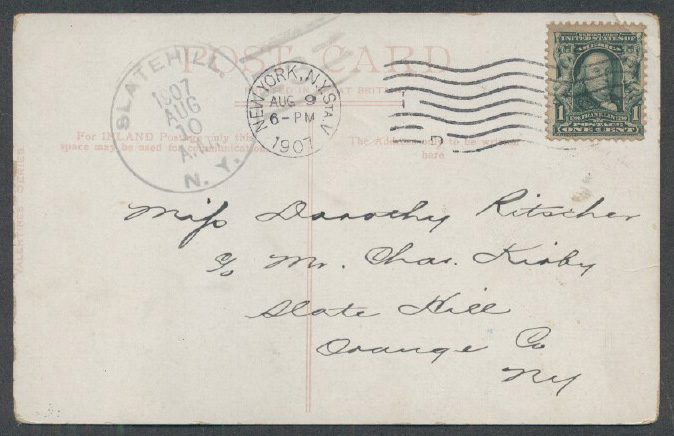 POST CARD
PRINTED IN GREAT BRITAIN
SLATEHILL,
1907
AUG
10
A.M.
N. Y.
NEW YORK, N.Y. STA. V
AUG 9
6-PM
1907
5
UNITED STATES OF AMERICA
1 1
POSTAGE
ONE CENT
For INLAND Postage only this
space may be used for communication
The Address only to be written
here
VALENTINE'S SERIES
Miss Dorothy Ritscher
c/o Mr. Chas. Kirby
Slate Hill
Orange Co
NY